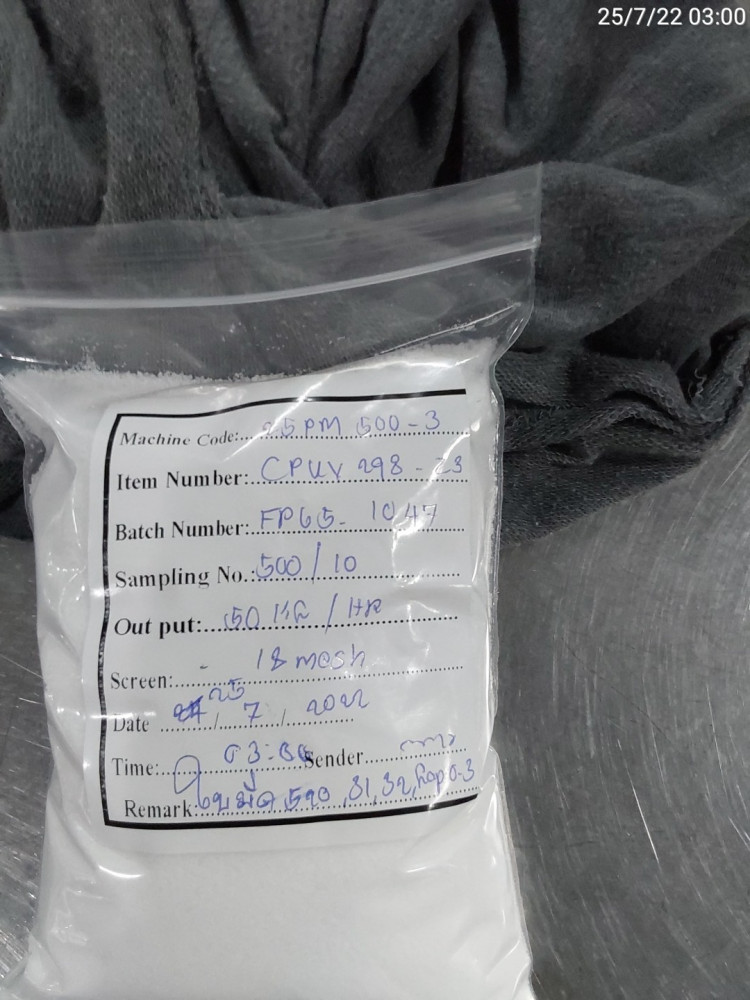 25/7/22 03:00
Machine Code: 25PM 500-3
Item Number: CPUV 298-23
Batch Number: FP65-1047
Sampling No.: 500/10
Out put: 50 KG/HR
Screen: - 18 mesh
Date 25/7/2022
Time: 03:00 Sender
Remark: ใบมีด 31,32,